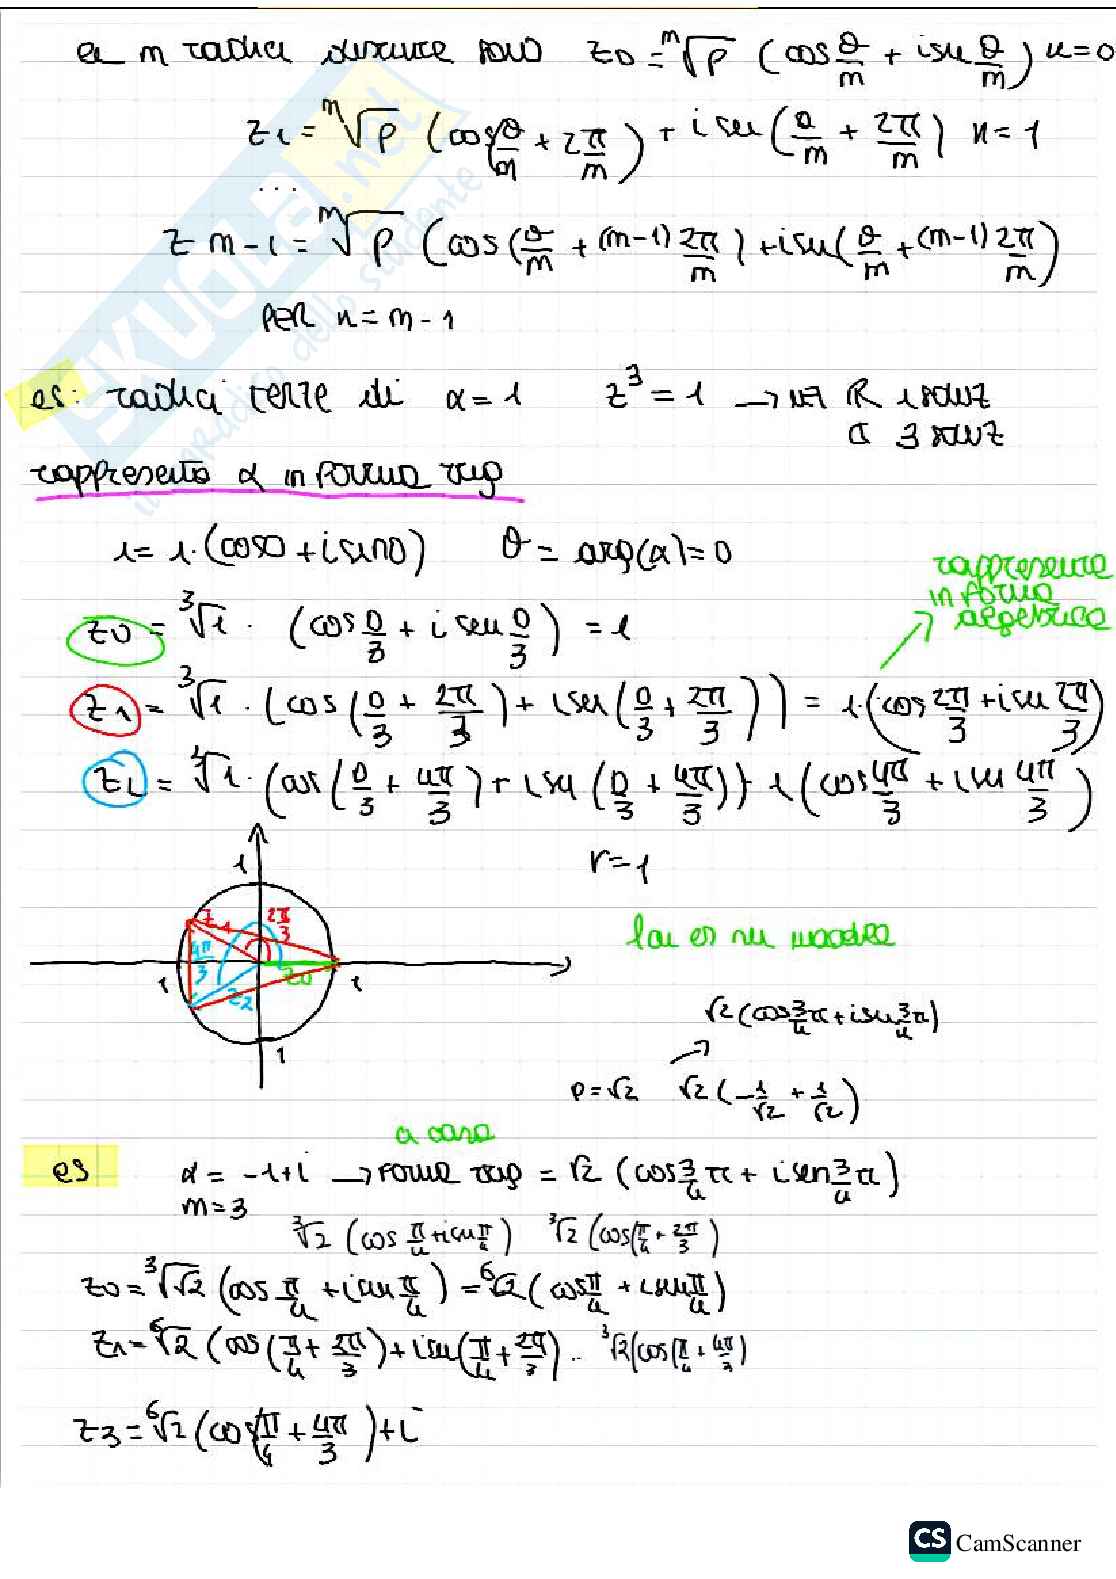 m radici diverse sono z0 = ᵐ√ρ (cos θ/m + i sen θ/m) k=0
z1 = ᵐ√ρ (cos θ/m + 2π/m) + i sen (θ/m + 2π/m) k=1
...
z m-1 = ᵐ√ρ (cos (θ/m + (m-1) 2π/m) + i sen (θ/m + (m-1) 2π/m)
PER k = m-1
es: radici terze di α=1 z³=1 → in ℝ 1 soluz
ℂ 3 soluz
rappresento α in forma trig
1 = 1·(cos0 + i sin0) θ = arg(α)=0
rappresentare
in forma
algebrica
z0 = ³√1 · (cos 0/3 + i sen 0/3) = 1
z1 = ³√1 · (cos (0/3 + 2π/3) + i sen (0/3 + 2π/3)) = 1·(cos 2π/3 + i sen 2π/3)
z2 = ³√1 · (cos (0/3 + 4π/3) + i sen (0/3 + 4π/3)) 1 (cos 4π/3 + i sen 4π/3)
r=1
1
z1
2π/3
4π/3
z2
z0
1
1
1
√2 (cos 3/4 π + i sen 3/4 π)
ρ=√2 √2 (-1/√2 + 1/√2)
a casa
es α = -1+i → forma trig = √2 (cos 3/4 π + i sen 3/4 π)
m=3
³√2 (cos π/4 + i sen π/4) ³√2 (cos(π/4 + 2π/3)
z0 = ³√√2 (cos π/4 + i sen π/4) = ⁶√2 (cos π/4 + i sen π/4)
z1 = ⁶√2 (cos (π/4 + 2π/3) + i sen (π/4 + 2π/3) .. ³√2 (cos (π/4 + 4π/3)
z3 = ⁶√2 (cos (π/4 + 4π/3) + i
SKUOLA.net
CS CamScanner